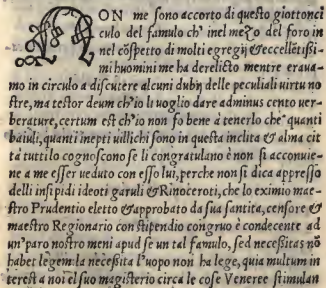 NON me sono accorto di questo giottonci
culo del famulo ch' inel mezo del foro in
nel cōspetto di molti egregij & eccellētissi-
mi huomini me ha derelicto mentre eraua-
mo in circulo a discutere alcuni dubij delle peculiali uirtu no
stre, ma testor deum ch'io li uoglio dare adminus cento uer-
berature, certum est ch'io non fo bene a tenerlo che quanti
baiuli, quanti inepti uillichi sono in questa inclita & alma cit
tà tutti lo cognoscono se li congratulano è non si acconuie-
ne a me esser ueduto con esso lui, perche non si dica appresso
delli insipidi ideoti garuli & Rinoceroti, che lo eximio mae-
stro Prudentio eletto & approbato da sua santita, censore &
maestro Regionario con stipendio congruo è condecente ad
un' paro nostro meni apud se un tal famulo, sed necessitas nō
habet legem la necessita l'uopo non ha lege, quia multum in
terest a noi el suo magisterio circa le cose Veneree stimulan